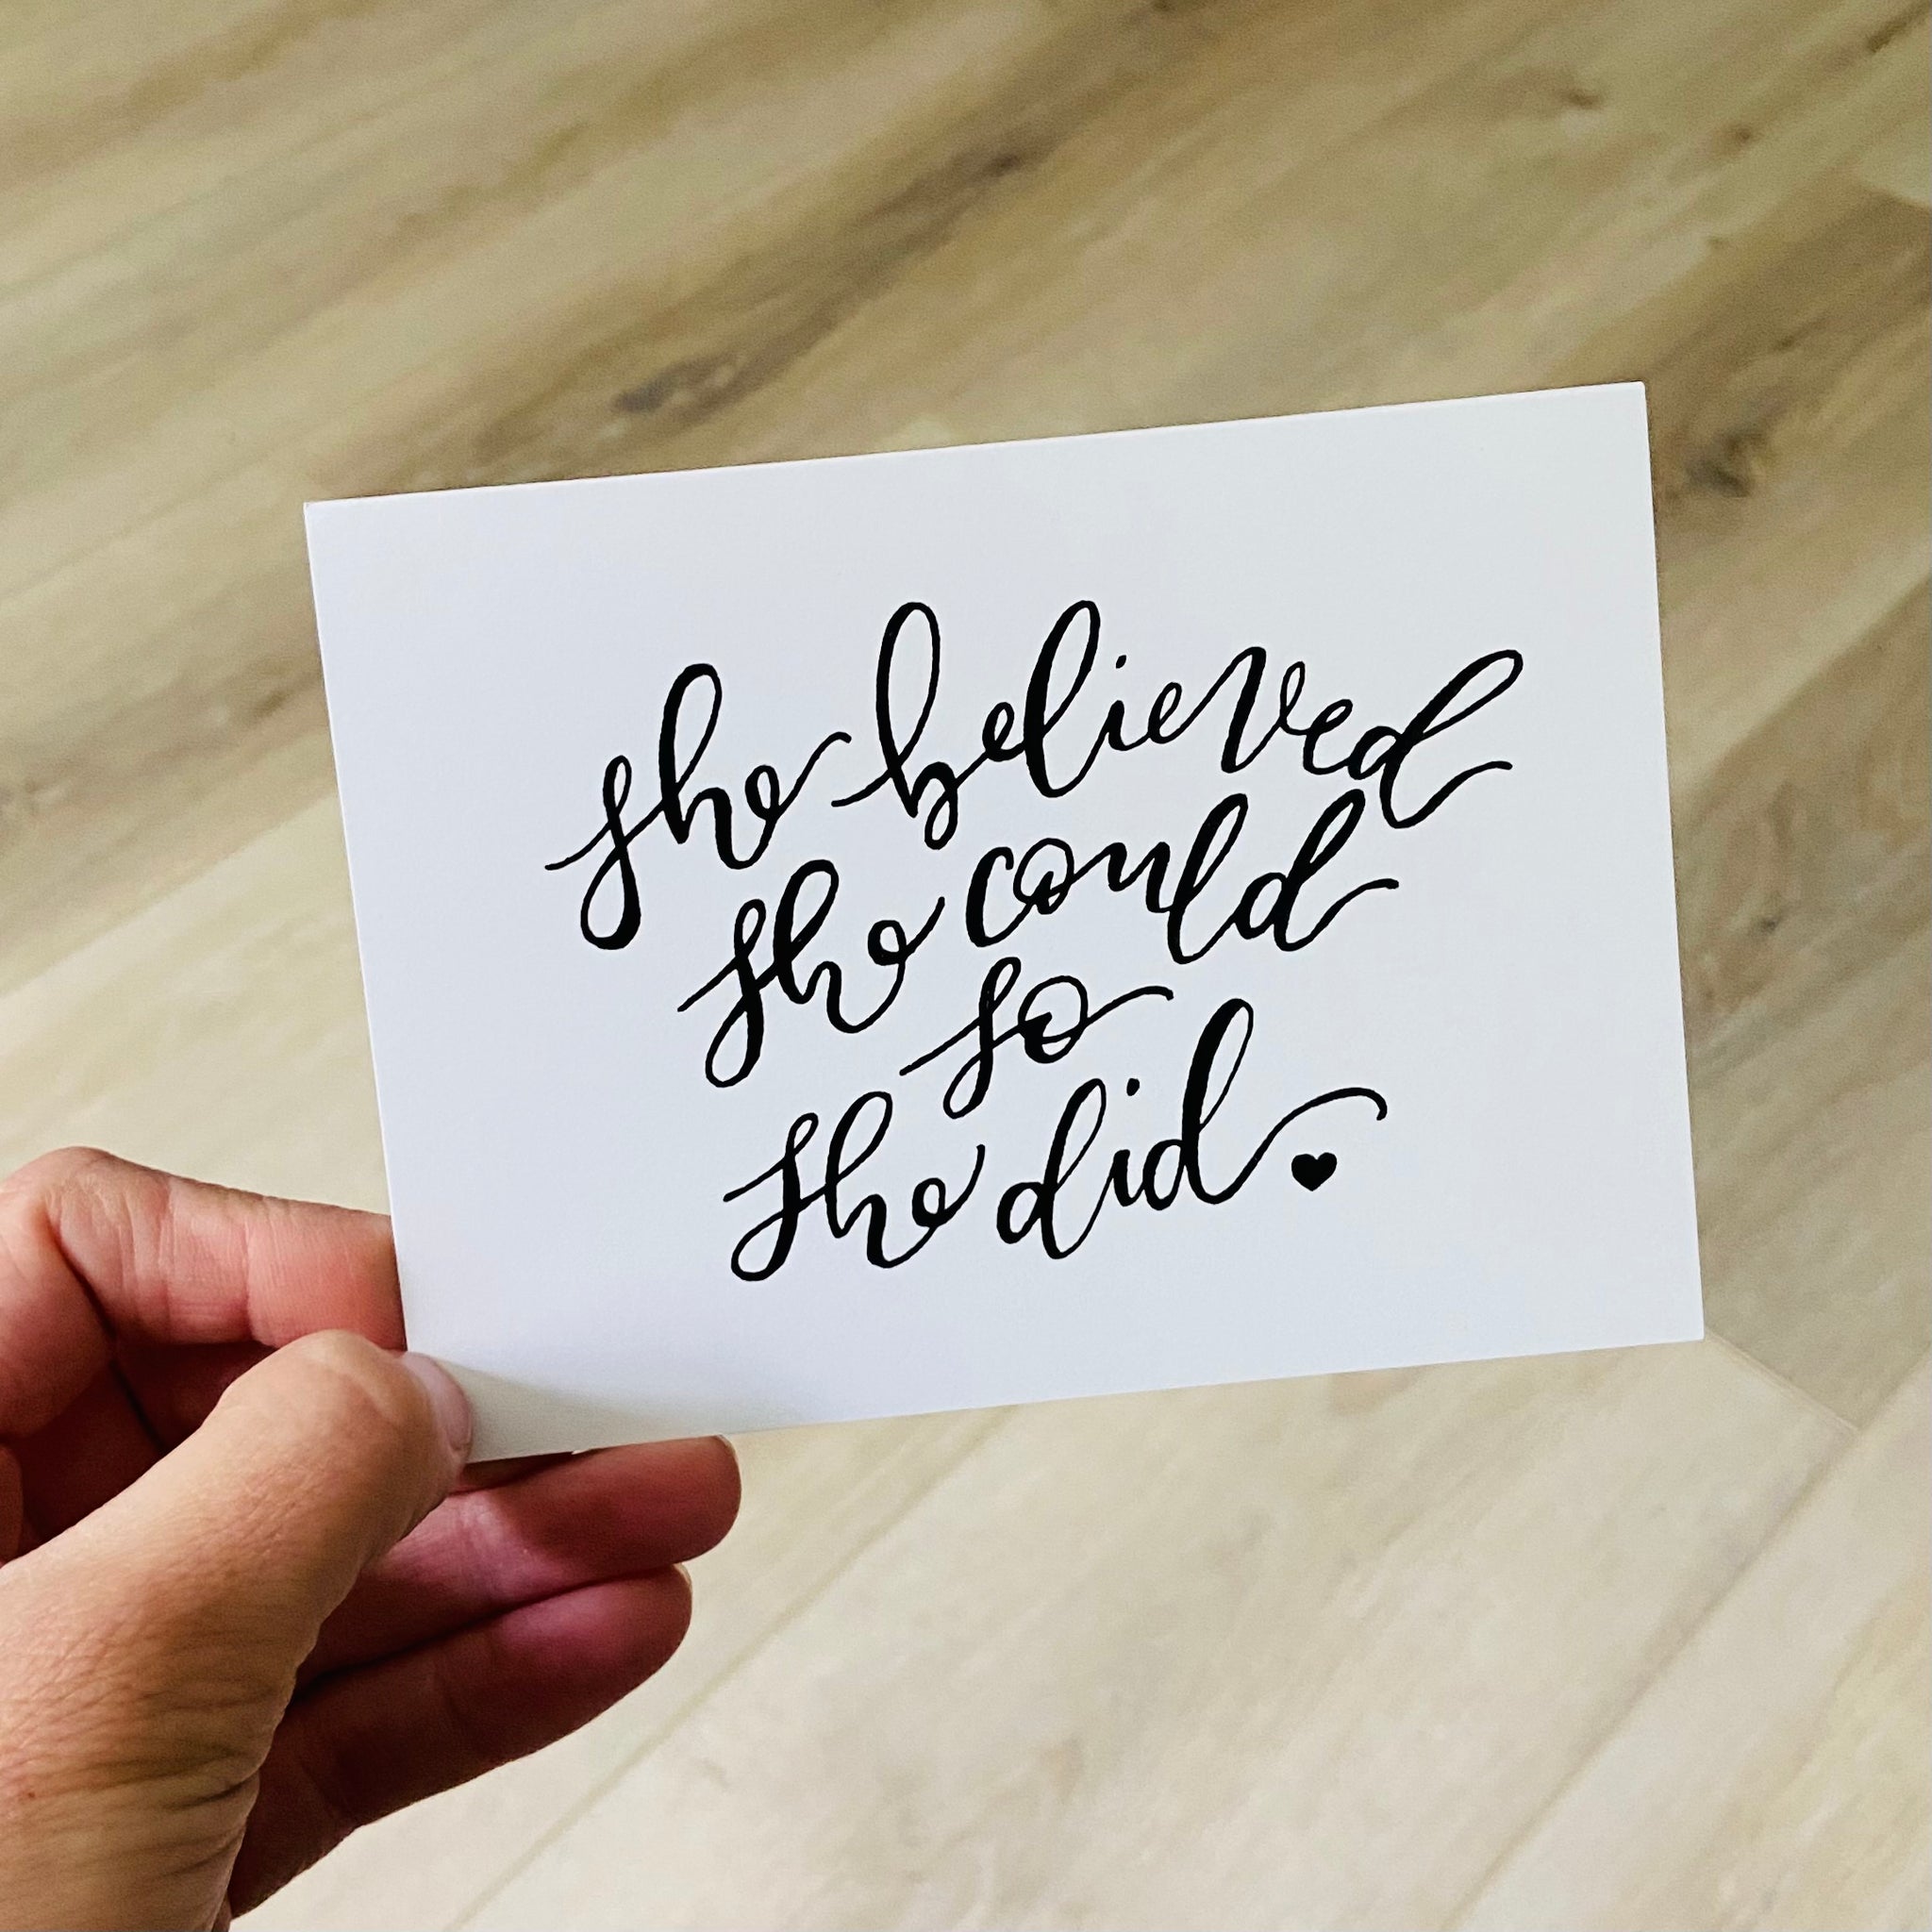 she believed
she could
so
she did